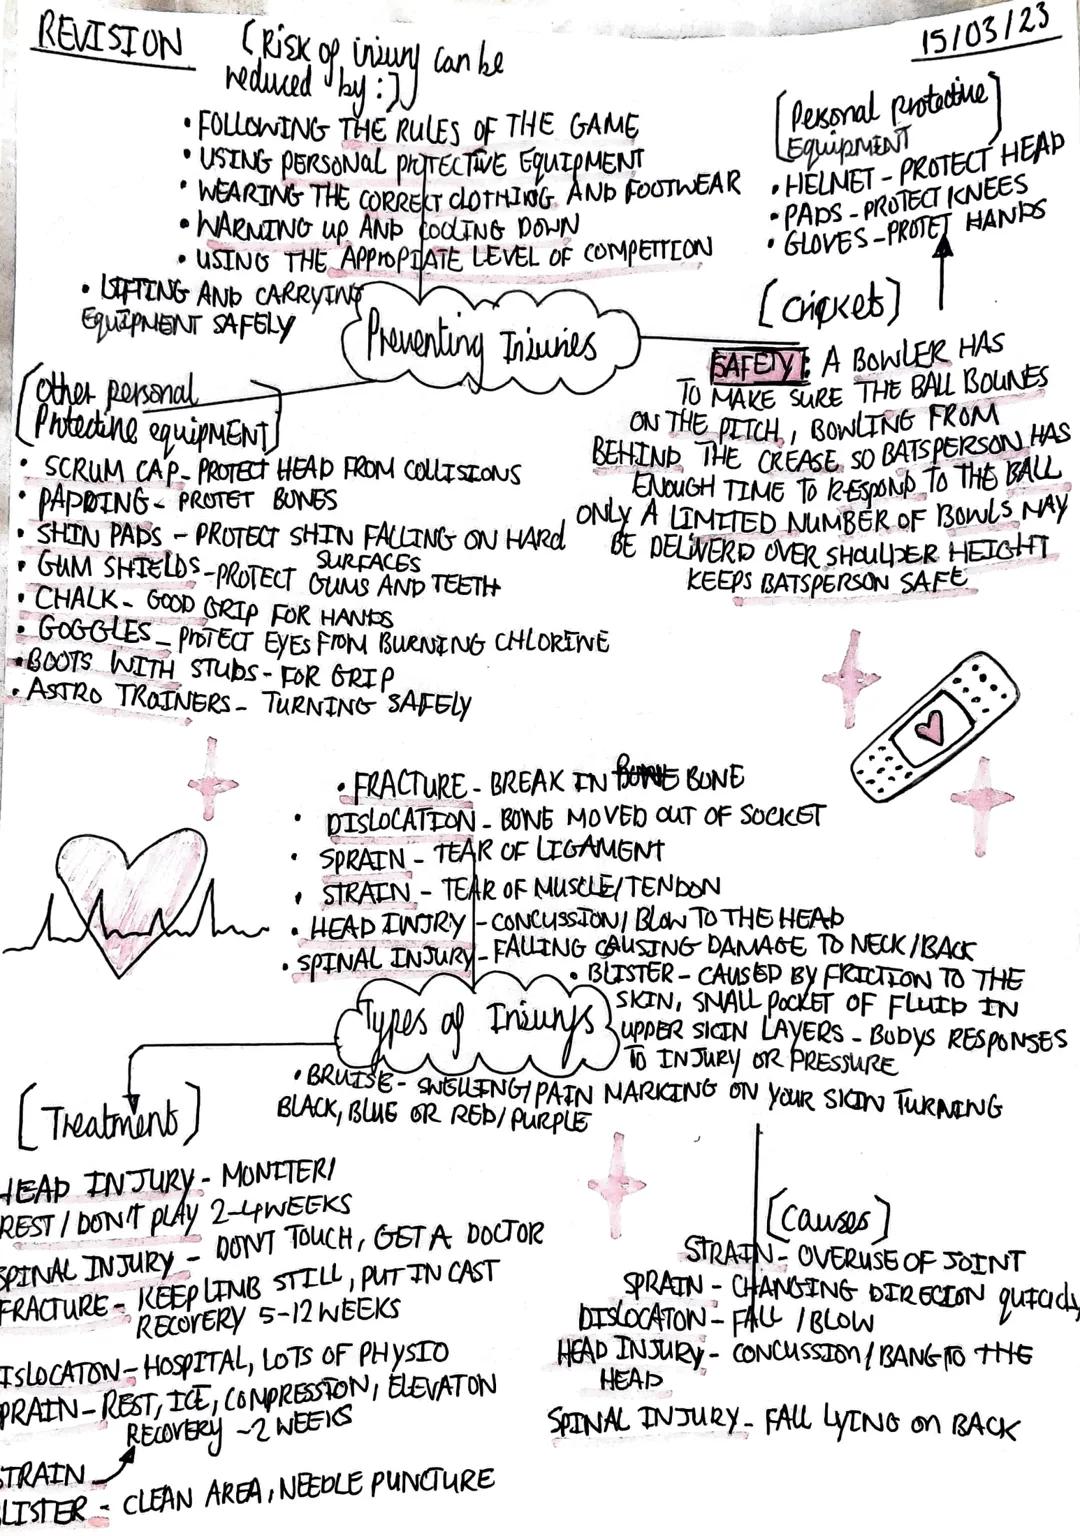 REVISION
15/03/23
[Risk of injury can be
reduced by:]
• FOLLOWING THE RULES OF THE GAME
• USING PERSONAL PROTECTIVE EQUIPMENT
• WEARING THE CORRECT CLOTHING AND FOOTWEAR
• WARMING UP AND COOLING DOWN
• USING THE APPROPIATE LEVEL OF COMPETTION
• LIFTING AND CARRYING
EQUIPMENT SAFELY
[Personal protective
EQUIPMENT]
• HELMET - PROTECT HEAD
• PADS - PROTECT KNEES
• GLOVES - PROTET HANDS
Preventing Injuries
[Cricket]
SAFETY: A BOWLER HAS
TO MAKE SURE THE BALL BOUNES
ON THE PITCH, BOWLING FROM
BEHIND THE CREASE SO BATSPERSON HAS
ENOUGH TIME TO RESPOND TO THE BALL
ONLY A LIMITED NUMBER OF BOWLS MAY
BE DELIVERD OVER SHOULDER HEIGHT
KEEPS BATSPERSON SAFE
[Other personal
Protective equipment]
• SCRUM CAP - PROTECT HEAD FROM COLLISIONS
• PADDING - PROTET BONES
• SHIN PADS - PROTECT SHIN FALLING ON HARD
SURFACES
• GUM SHIELDS - PROTECT GUMS AND TEETH
• CHALK - GOOD GRIP FOR HANDS
• GOGGLES - PROTECT EYES FROM BURNING CHLORINE
• BOOTS WITH STUDS - FOR GRIP
• ASTRO TRAINERS - TURNING SAFELY
• FRACTURE - BREAK IN BONE
• DISLOCATION - BONE MOVED OUT OF SOCKET
• SPRAIN - TEAR OF LIGAMENT
• STRAIN - TEAR OF MUSCLE/TENDON
• HEAD INJRY - CONCUSSION/BLOW TO THE HEAD
• SPINAL INJURY - FALLING CAUSING DAMAGE TO NECK/BACK
• BLISTER - CAUSED BY FRICTION TO THE
SKIN, SMALL POCKET OF FLUID IN
UPPER SKIN LAYERS - BODYS RESPONSES
TO INJURY OR PRESSURE
Types of Injurys
• BRUISE - SWELLING/PAIN MARKING ON YOUR SKIN TURNING
BLACK, BLUE OR RED/PURPLE
[Treatment]
HEAD INJURY - MONITER/
REST/DON'T PLAY 2-4 WEEKS
SPINAL INJURY - DONT TOUCH, GET A DOCTOR
FRACTURE - KEEP LIMB STILL, PUT IN CAST
RECOVERY 5-12 WEEKS
ISLOCATON - HOSPITAL, LOTS OF PHYSIO
PRAIN - REST, ICE, COMPRESSION, ELEVATON
RECOVERY ~2 WEEKS
STRAIN
LISTER - CLEAN AREA, NEEDLE PUNCTURE
[Causes]
STRAIN - OVERUSE OF JOINT
SPRAIN - CHANGING DIRECION quickly
DISLOCATON - FALL / BLOW
HEAD INJURY - CONCUSSION/BANG TO THE
HEAD
SPINAL INJURY - FALL LYING ON BACK